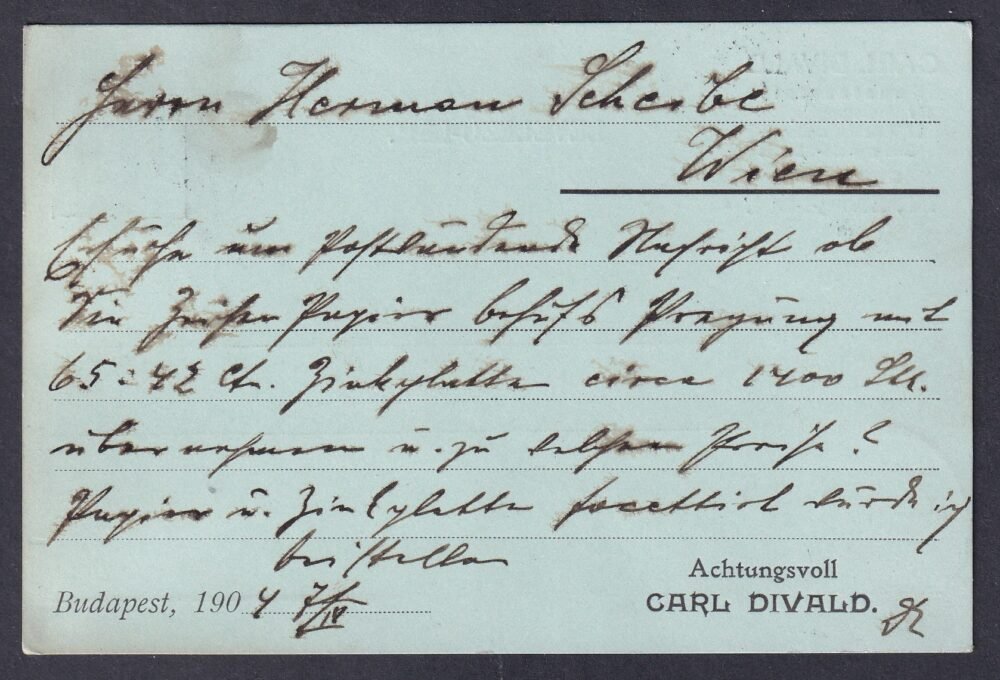 Herrn Herman Scheibe
Wien
Ersuche um postwendende Nachricht ob
Sie Papier behufs Pragung mit
65:42 Ct. Zinkplatte circa 1400 Stk.
übernehmen u. zu welchem Preise?
Papier u. Zinkplatte facettirt würde ich
beistellen
Achtungsvoll
Budapest, 1904 7/IV CARL DIVALD.